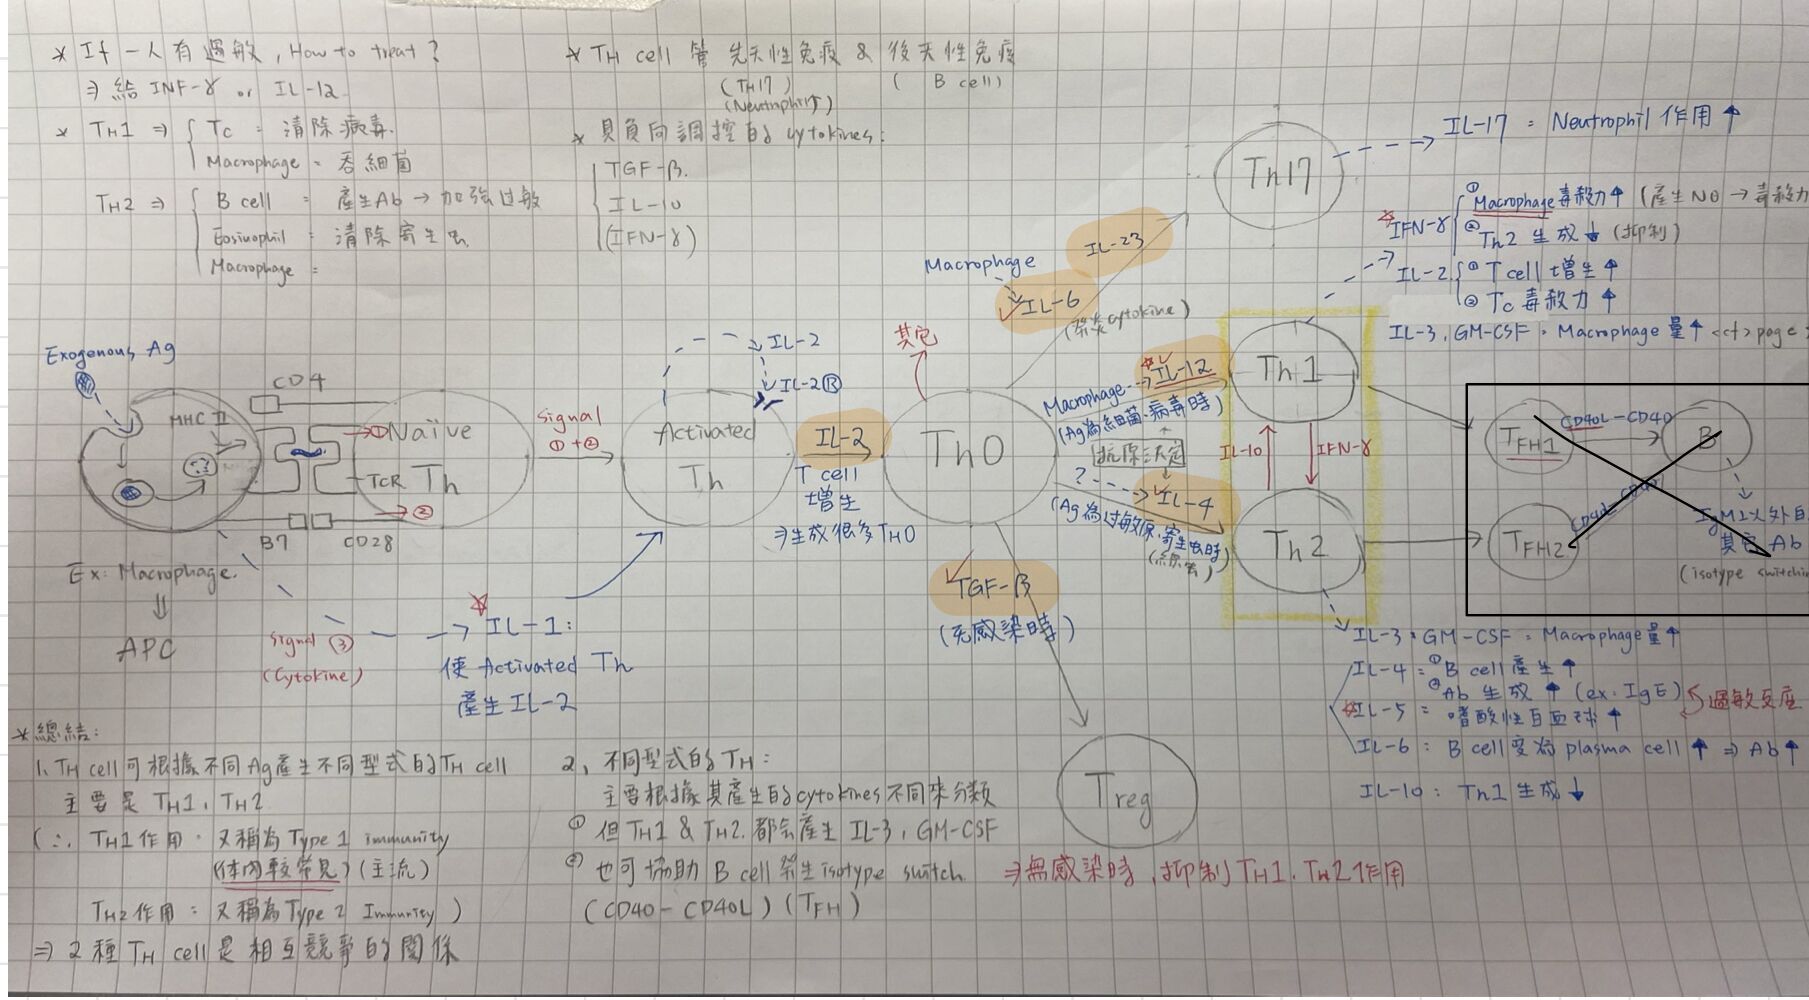 * If 一人有過敏, How to treat?
⇒ 給 INF-γ or IL-12.
* TH1 ⇒ { Tc : 清除病毒.
Macrophage : 吞細菌
TH2 ⇒ { B cell : 產生Ab → 加強过敏
Eosinophil : 清除寄生虫
Macrophage :
* TH cell 管 先天性免疫 & 後天性免疫
(TH17) ( B cell)
(Neutrophil↑)
* 具負向調控的 cytokines:
TGF-β.
IL-10
(IFN-γ)
Th17
IL-17 : Neutrophil 作用 ↑
IL-23
Macrophage
IL-6
(發炎cytokine)
☆ IFN-γ { ① Macrophage毒殺力↑ (產生NO → 毒殺力
② Th2 生成↓ (抑制)
IL-2 { ① T cell 增生 ↑
② Tc 毒殺力 ↑
IL-3, GM-CSF : Macrophage 量↑ <cf> page
Exogenous Ag
MHC II
CD4
① Naïve
TCR Th
②
B7 CD28
Ex: Macrophage.
⇓
APC
Signal
①+②
Activated
Th
IL-2
IL-2Ⓡ
IL-2
T cell
增生
⇒生成很多TH0
Th0
其它
Macrophage → ☆ IL-12
(Ag為細菌.病毒時)
抗原決定
? → IL-4
(Ag為过敏原.寄生虫時)
Th1
IL-10 IFN-γ
Th2
TFH1 CD40L-CD40 B
TFH2
IgM以外的
其它 Ab
(isotype switchin
TGF-β
(无感染時)
Treg
⇒無感染時, 抑制TH1. TH2作用
Signal ③
(Cytokine)
☆ IL-1:
使 Activated Th
產生IL-2
IL-3, GM-CSF : Macrophage量↑
IL-4 : ① B cell 產生 ↑
② Ab 生成 ↑ (ex. IgE)
☆ IL-5 : 嗜酸性白血球 ↑
過敏反應
IL-6 : B cell 变為 plasma cell ↑ ⇒ Ab↑
IL-10 : Th1 生成↓
* 總結:
1. TH cell可根據不同Ag產生不同型式的TH cell
主要是 TH1, TH2
(∴ TH1作用 : 又稱為Type 1 immunity
(体內較常見) (主流)
TH2作用 : 又稱為Type 2 Immunity )
⇒ 2種 TH cell 是相互競爭的關係
2. 不同型式的 TH :
主要根據其產生的cytokines不同來分類
① 但 TH1 & TH2. 都会產生 IL-3, GM-CSF
② 也可協助 B cell 發生isotype switch.
(CD40 - CD40L) (TFH)